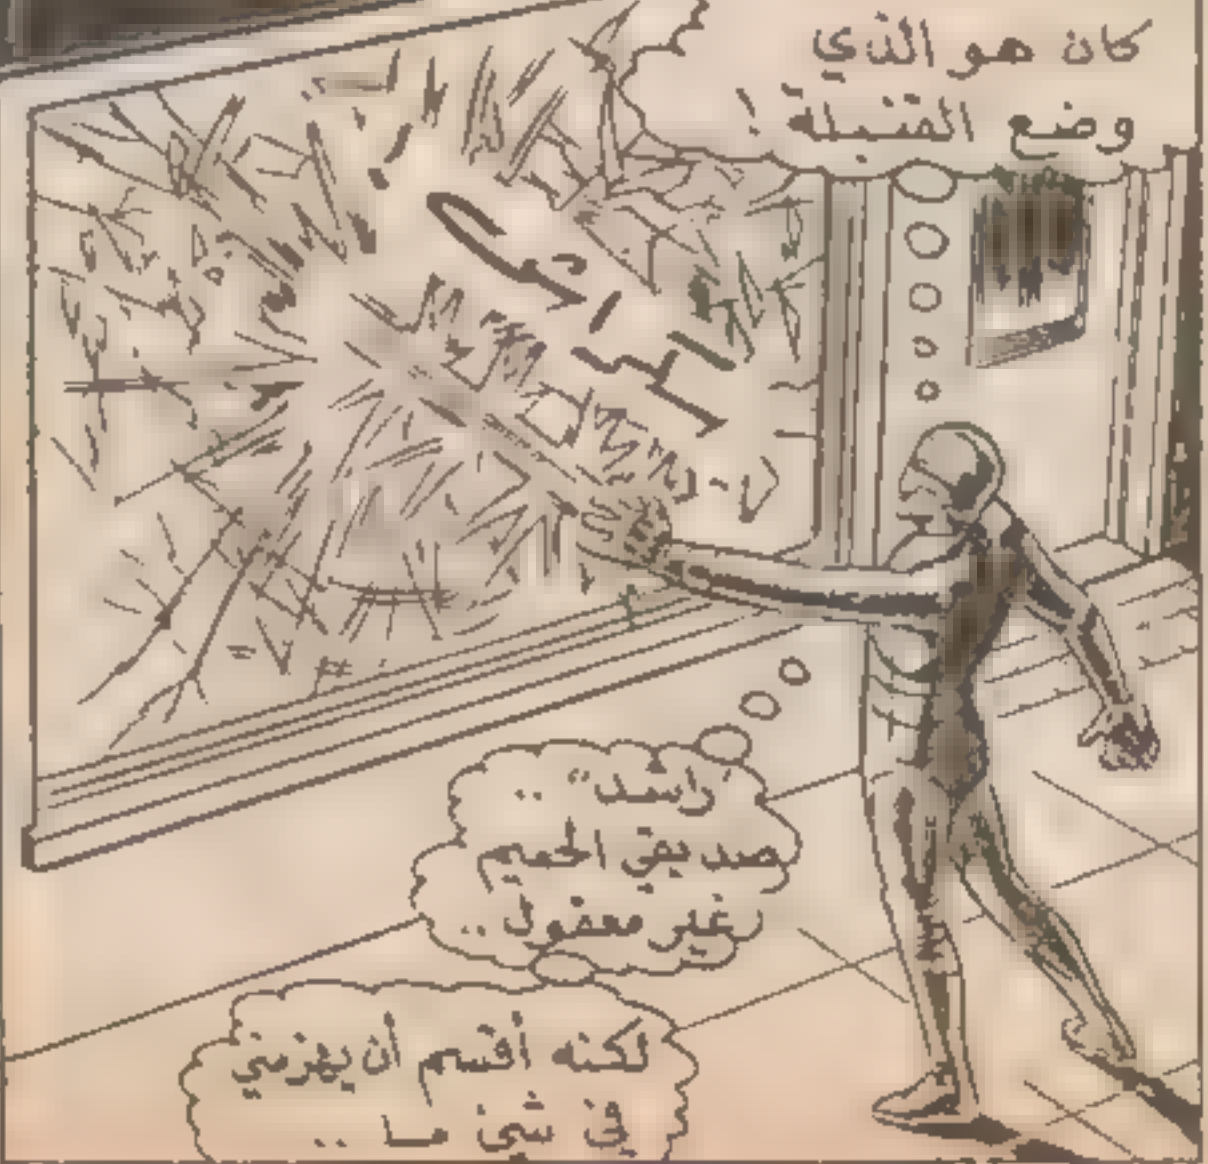 كان هو الذي
وضع القنبلة !
"راشد" ..
صديقي الحميم
غير معقول ..
لكنه أقسم أن يهزمني
في شئ ما ..